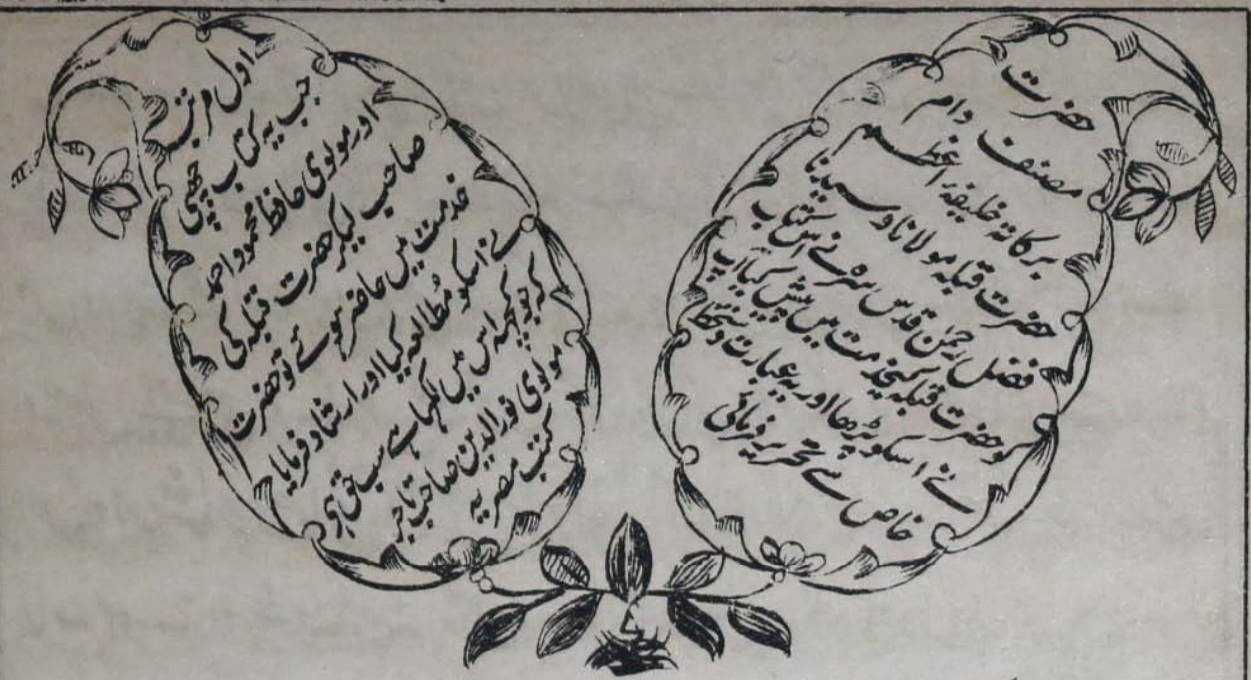 حضرت
مصنف دام
برکاتہ خلیفہ اعظم
حضرت قبلہ مولانا و سیدنا
فضل رحمٰن قدس سرہ نے اس کتاب
کو حضرت قبلہ کیخدمت میں پیش کیا آپ
نے اسکو پڑھا اور یہ عبارت دستخط
خاص سے تحریر فرمائی
اول مرتبہ
جب یہ کتاب چھپی
اور مولوی حافظ محمود احمد
صاحب لیکر حضرت قبلہ کی
خدمت میں حاضر ہوئے تو حضرت
نے اسکو مُطالعہ کیا اور ارشاد فرمایا
کہ جو کچہہ اس میں لکہا ہے سب حق ہی
مولوی نور الدین صاحب تاجر
کتب مصریہ